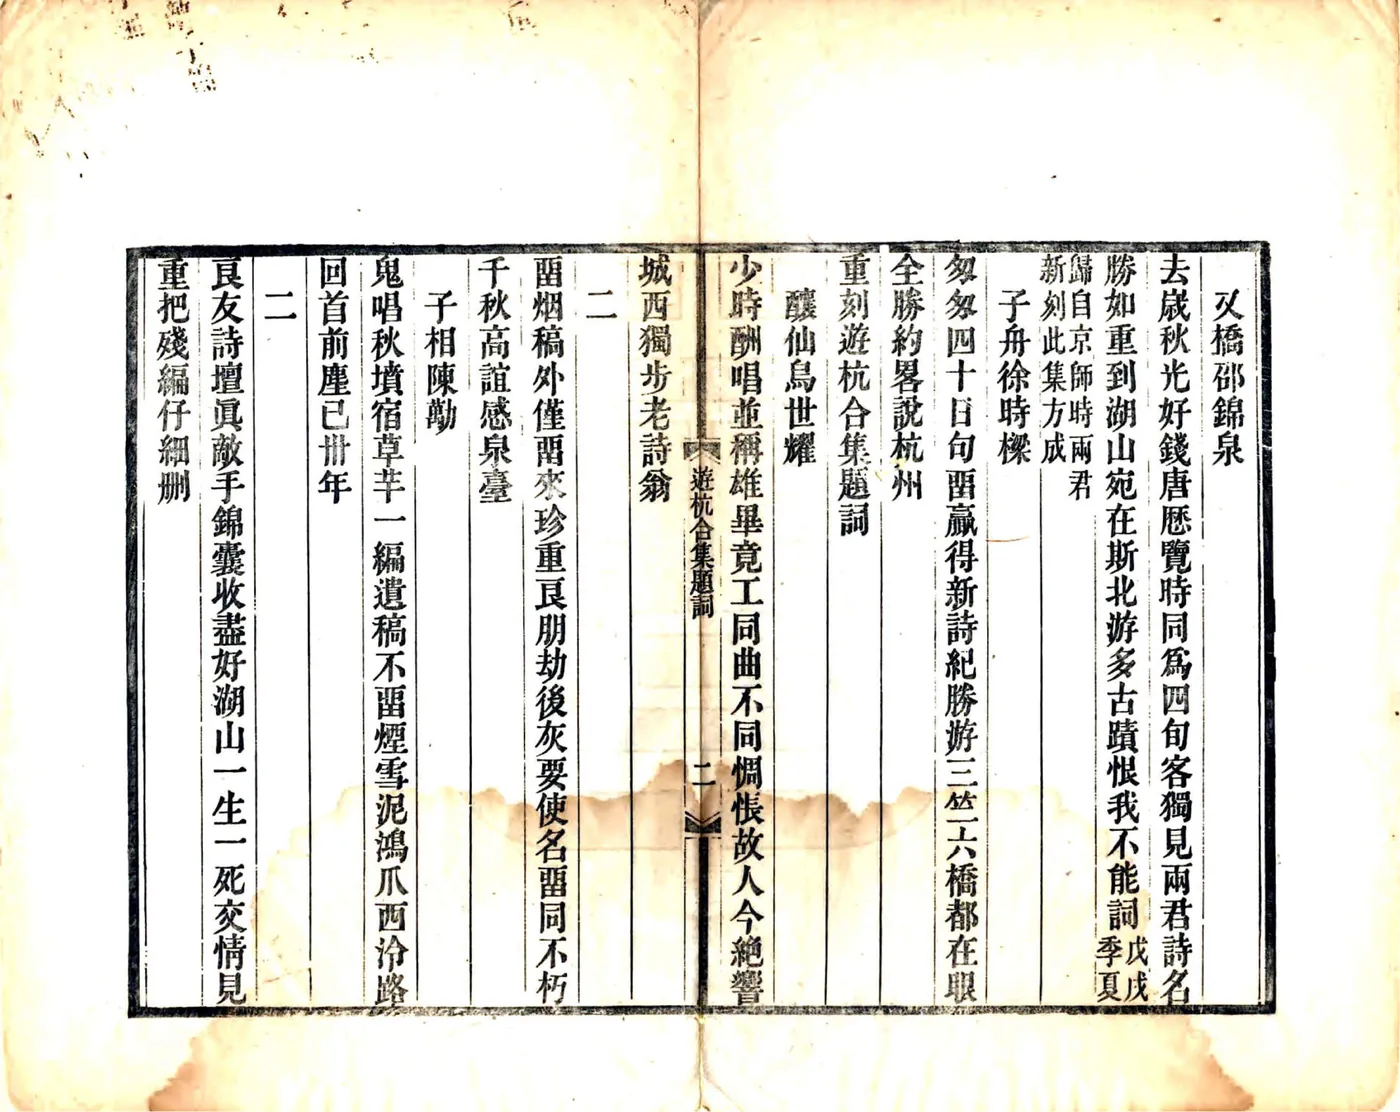 㕛橋邵錦泉
去歲秋光好錢唐歷覽時同爲四旬客獨見兩君詩名
勝如重到湖山宛在斯北游多古蹟恨我不能詞戊戌季夏
歸自京師時兩君
新刻此集方成
子舟徐時樑
匆匆四十日句畱贏得新詩紀勝游三竺六橋都在眼
全勝約畧說杭州
重刻遊杭合集題詞
釀仙烏世耀
少時酬唱並稱雄畢竟工同曲不同惆悵故人今絶響
遊杭合集題詞
二
城西獨步老詩翁
二
畱烟稿外僅畱來珍重良朋劫後灰要使名畱同不朽
千秋高誼感泉臺
子相陳勱
鬼唱秋墳宿草芊一編遺稿不畱煙雪泥鴻爪西泠路
回首前塵已卅年
二
良友詩壇眞敵手錦囊收盡好湖山一生一死交情見
重把殘編仔細删